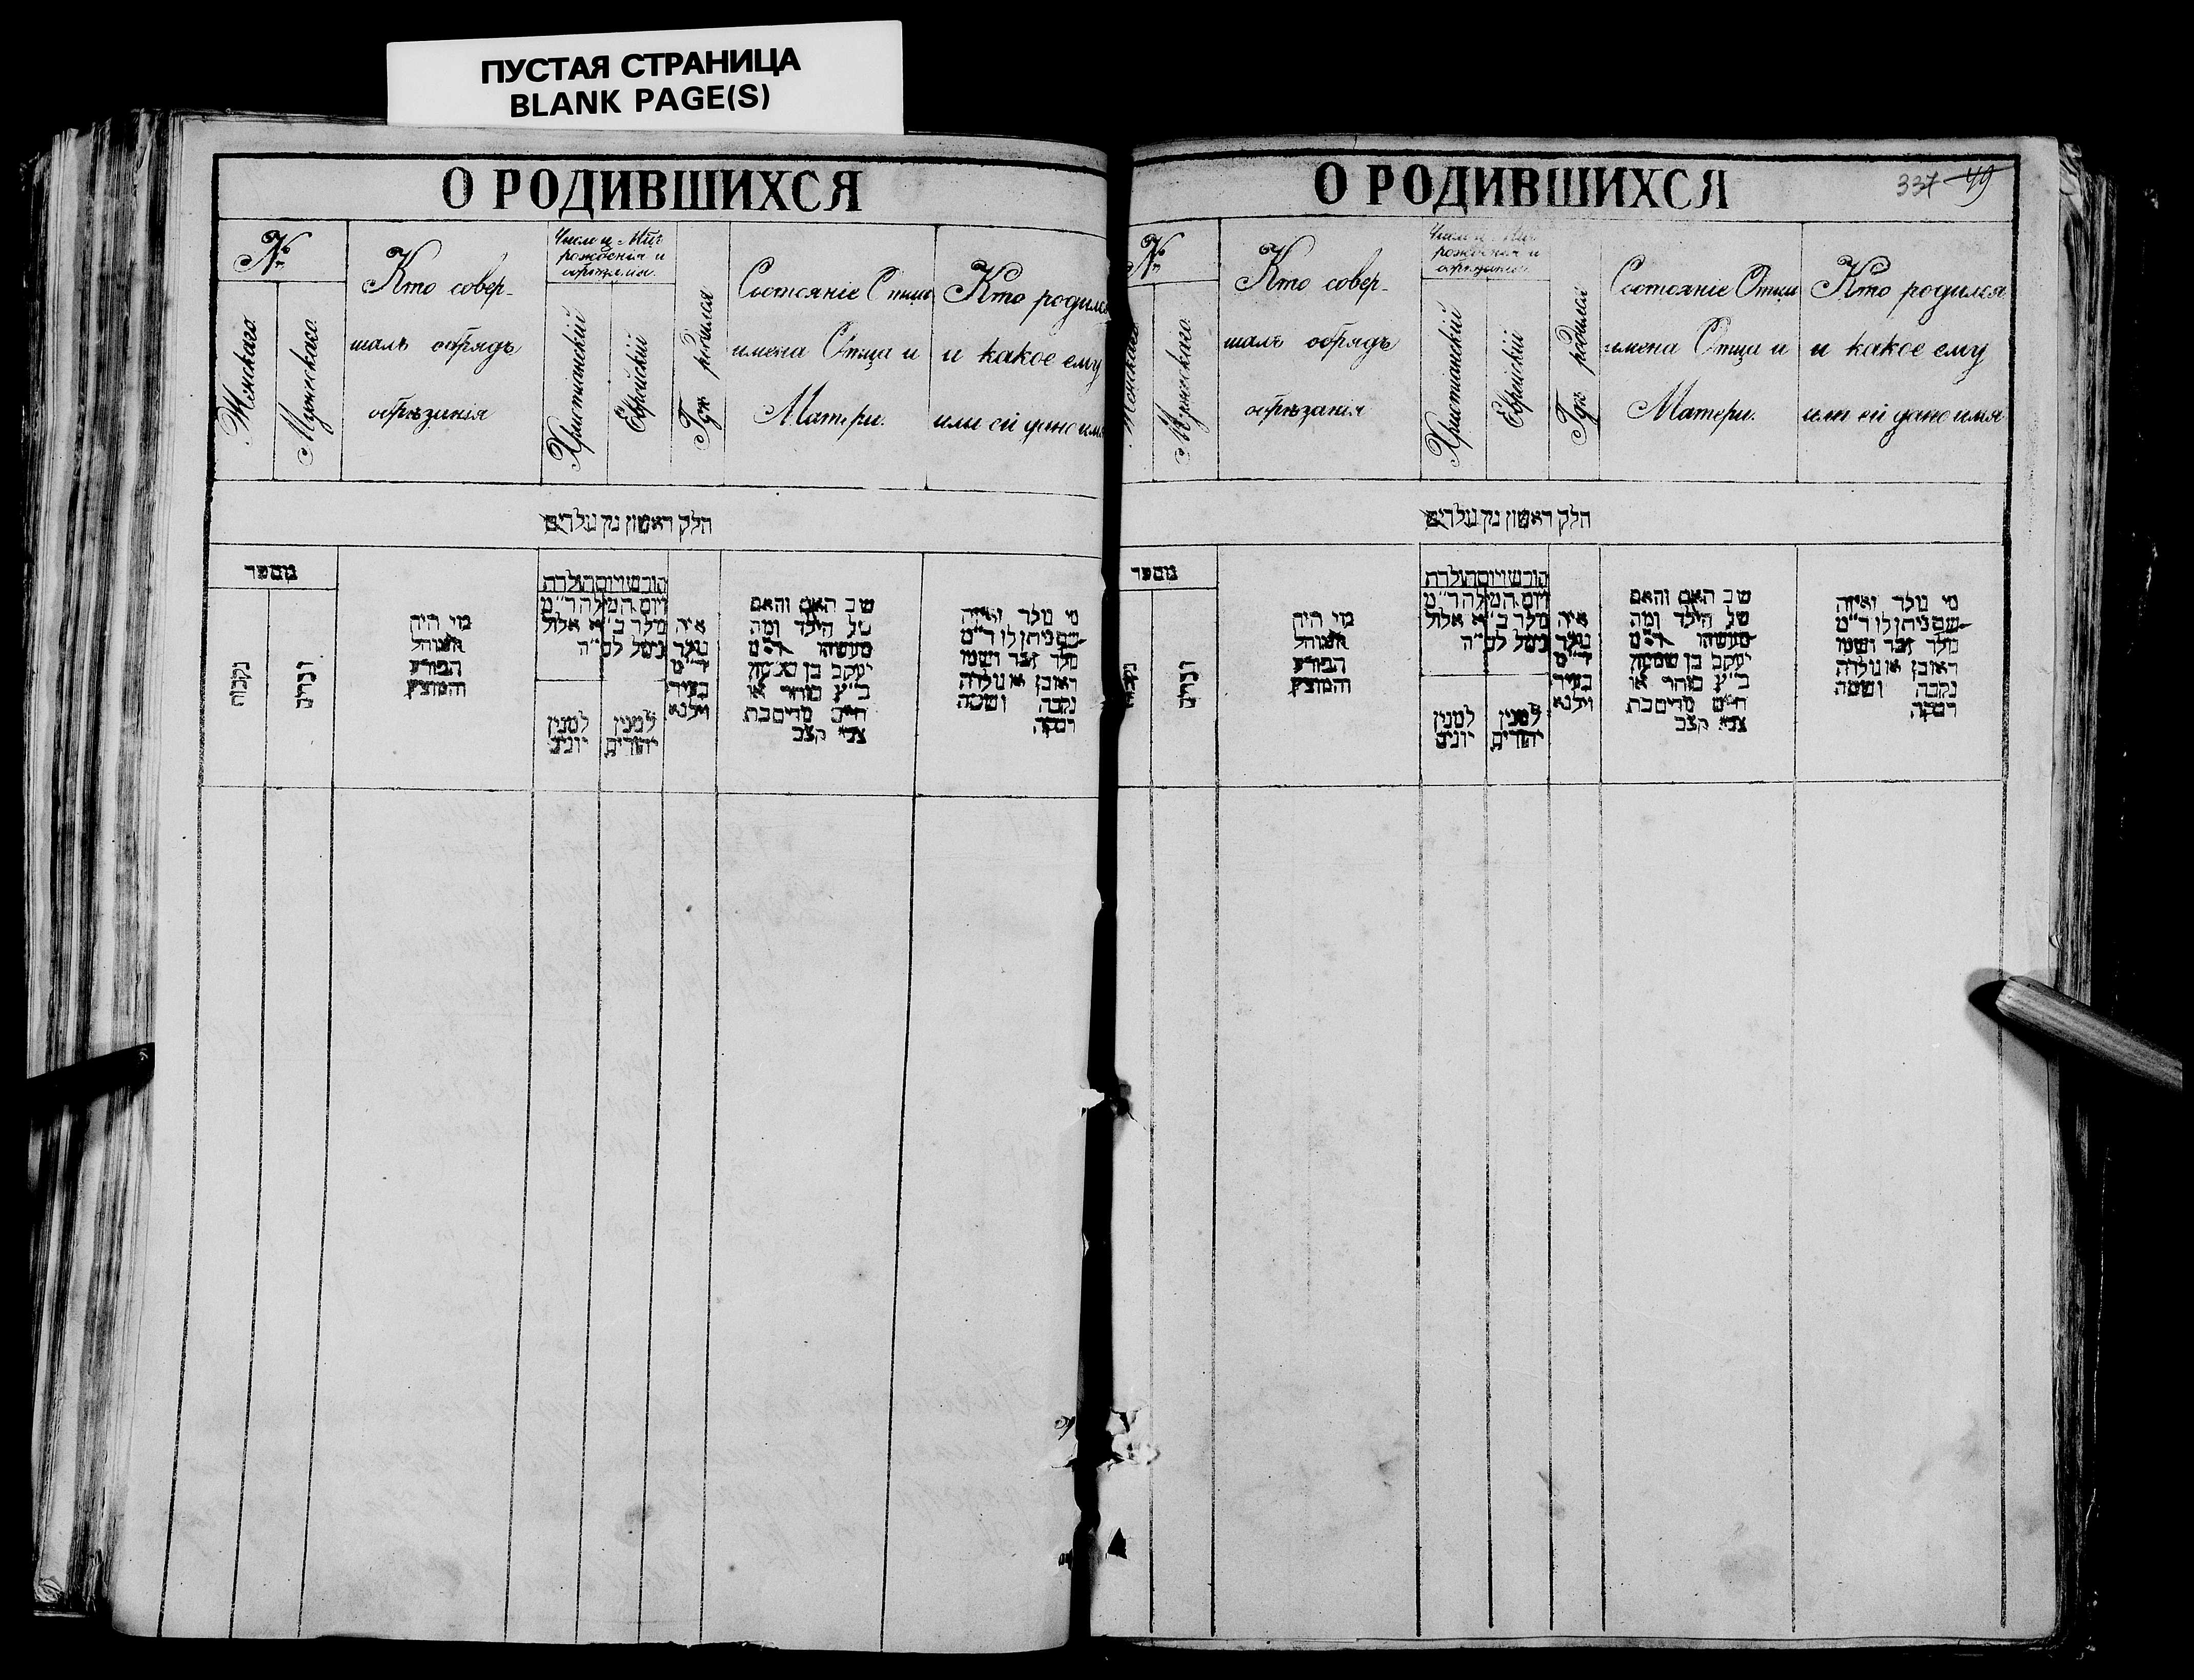 ПУСТАЯ СТРАНИЦА
BLANK PAGE(S)
О РОДИВШИХСЯ
№
Женскаго.
Мужескаго.
Кто совер-
шалъ обрядъ
обрѣзанія
Число и Мѣс.
рожденія и
обрѣзанія.
Христіанскій
Еврейскій
Гдѣ родился
Состояніе Отца
имена Отца и
Матери.
Кто родился
и какое ему
или ей дано имя
חלק ראשון מן נולדים
מספר
נקבות
זכרים
מי היה
המוהל
הפורע
והמוצץ
חודש ויום הולדת
ויום המילה ר״מ
מלד ב״א אלול
למנין
יונים
למנין
יהודים
איה
נולד
ד״מ
בעיר
ווילנא
שם האב והאם
של הילד ומה
מעשהו ד״מ
יעקב בן שמעון
ב״ע סוחר או
חייט מרים בת
צבי קצב
מי נולד ואיזה
שם ניתן לו ד״מ
נולד זכר ושמו
ראובן או נולדה
נקבה ושמה
רבקה
О РОДИВШИХСЯ
337 49
№
Женскаго
Мужескаго.
Кто совер-
шалъ обрядъ
обрѣзанія
Число и Мѣс.
рожденія и
обрѣзанія.
Христіанскій
Еврейскій
Гдѣ родился
Состояніе Отца
имена Отца и
Матери.
Кто родился
и какое ему
или ей дано имя
חלק ראשון מן נולדים
מספר
נקבות
זכרים
מי היה
המוהל
הפורע
והמוצץ
חודש ויום הולדת
ויום המילה ר״מ
מלד ב״א אלול
למנין
יונים
למנין
יהודים
איה
נולד
ד״מ
בעיר
ווילנא
שם האב והאם
של הילד ומה
מעשהו ד״מ
יעקב בן שמעון
ב״ע סוחר או
חייט מרים בת
צבי קצב
מי נולד ואיזה
שם ניתן לו ד״מ
נולד זכר ושמו
ראובן או נולדה
נקבה ושמה
רבקה